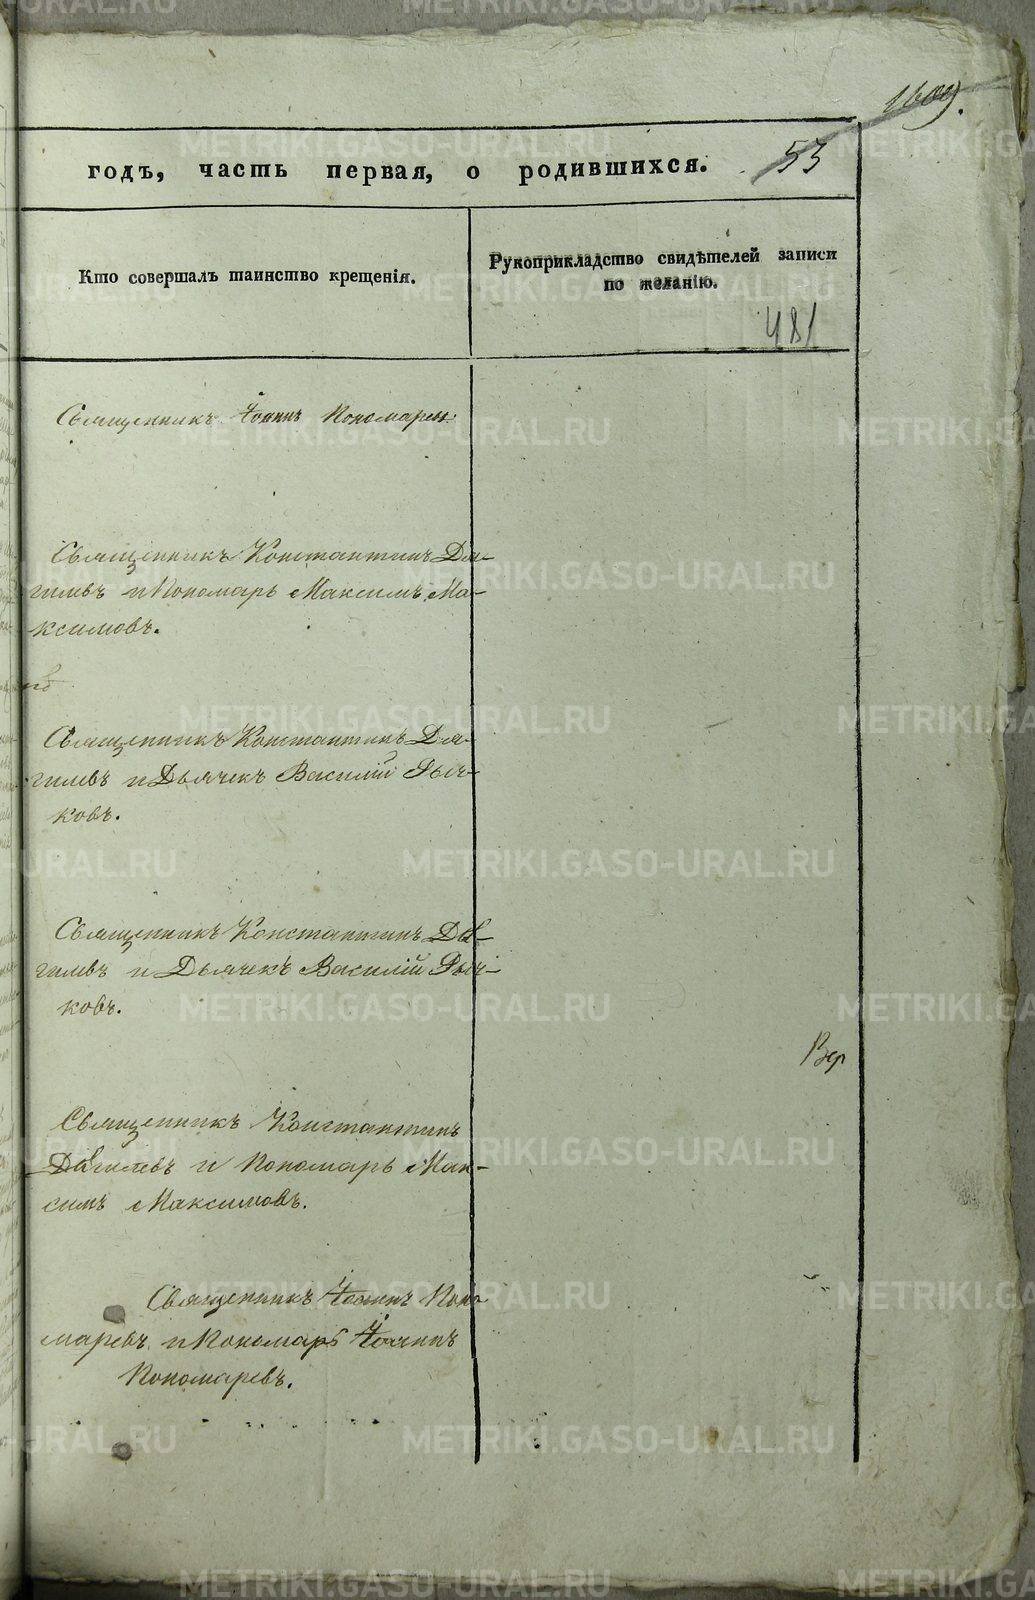 1609.
годъ, часть первая, о родившихся. 53
Кто совершалъ таинство крещенія.
Рукоприкладство свидѣтелей записи
по желанію.
481
Священникъ Іоаннъ Пономаревъ
Священникъ Константинъ Дя-
гилевъ и Пономарь Максимъ Ма-
ксимовъ.
Священникъ Константинъ Дя-
гилевъ и Дьячекъ Василій Рыч-
ковъ.
Священникъ Константинъ Дя-
гилевъ и Дьячекъ Василій Рыч-
ковъ.
Вер
Священникъ Константинъ
Дягилевъ и Пономарь Мак-
симъ Максимовъ.
Священникъ Іоаннъ Поно-
маревъ и Пономарь Іоаннъ
Пономаревъ.
METRIKI.GASO-URAL.RU